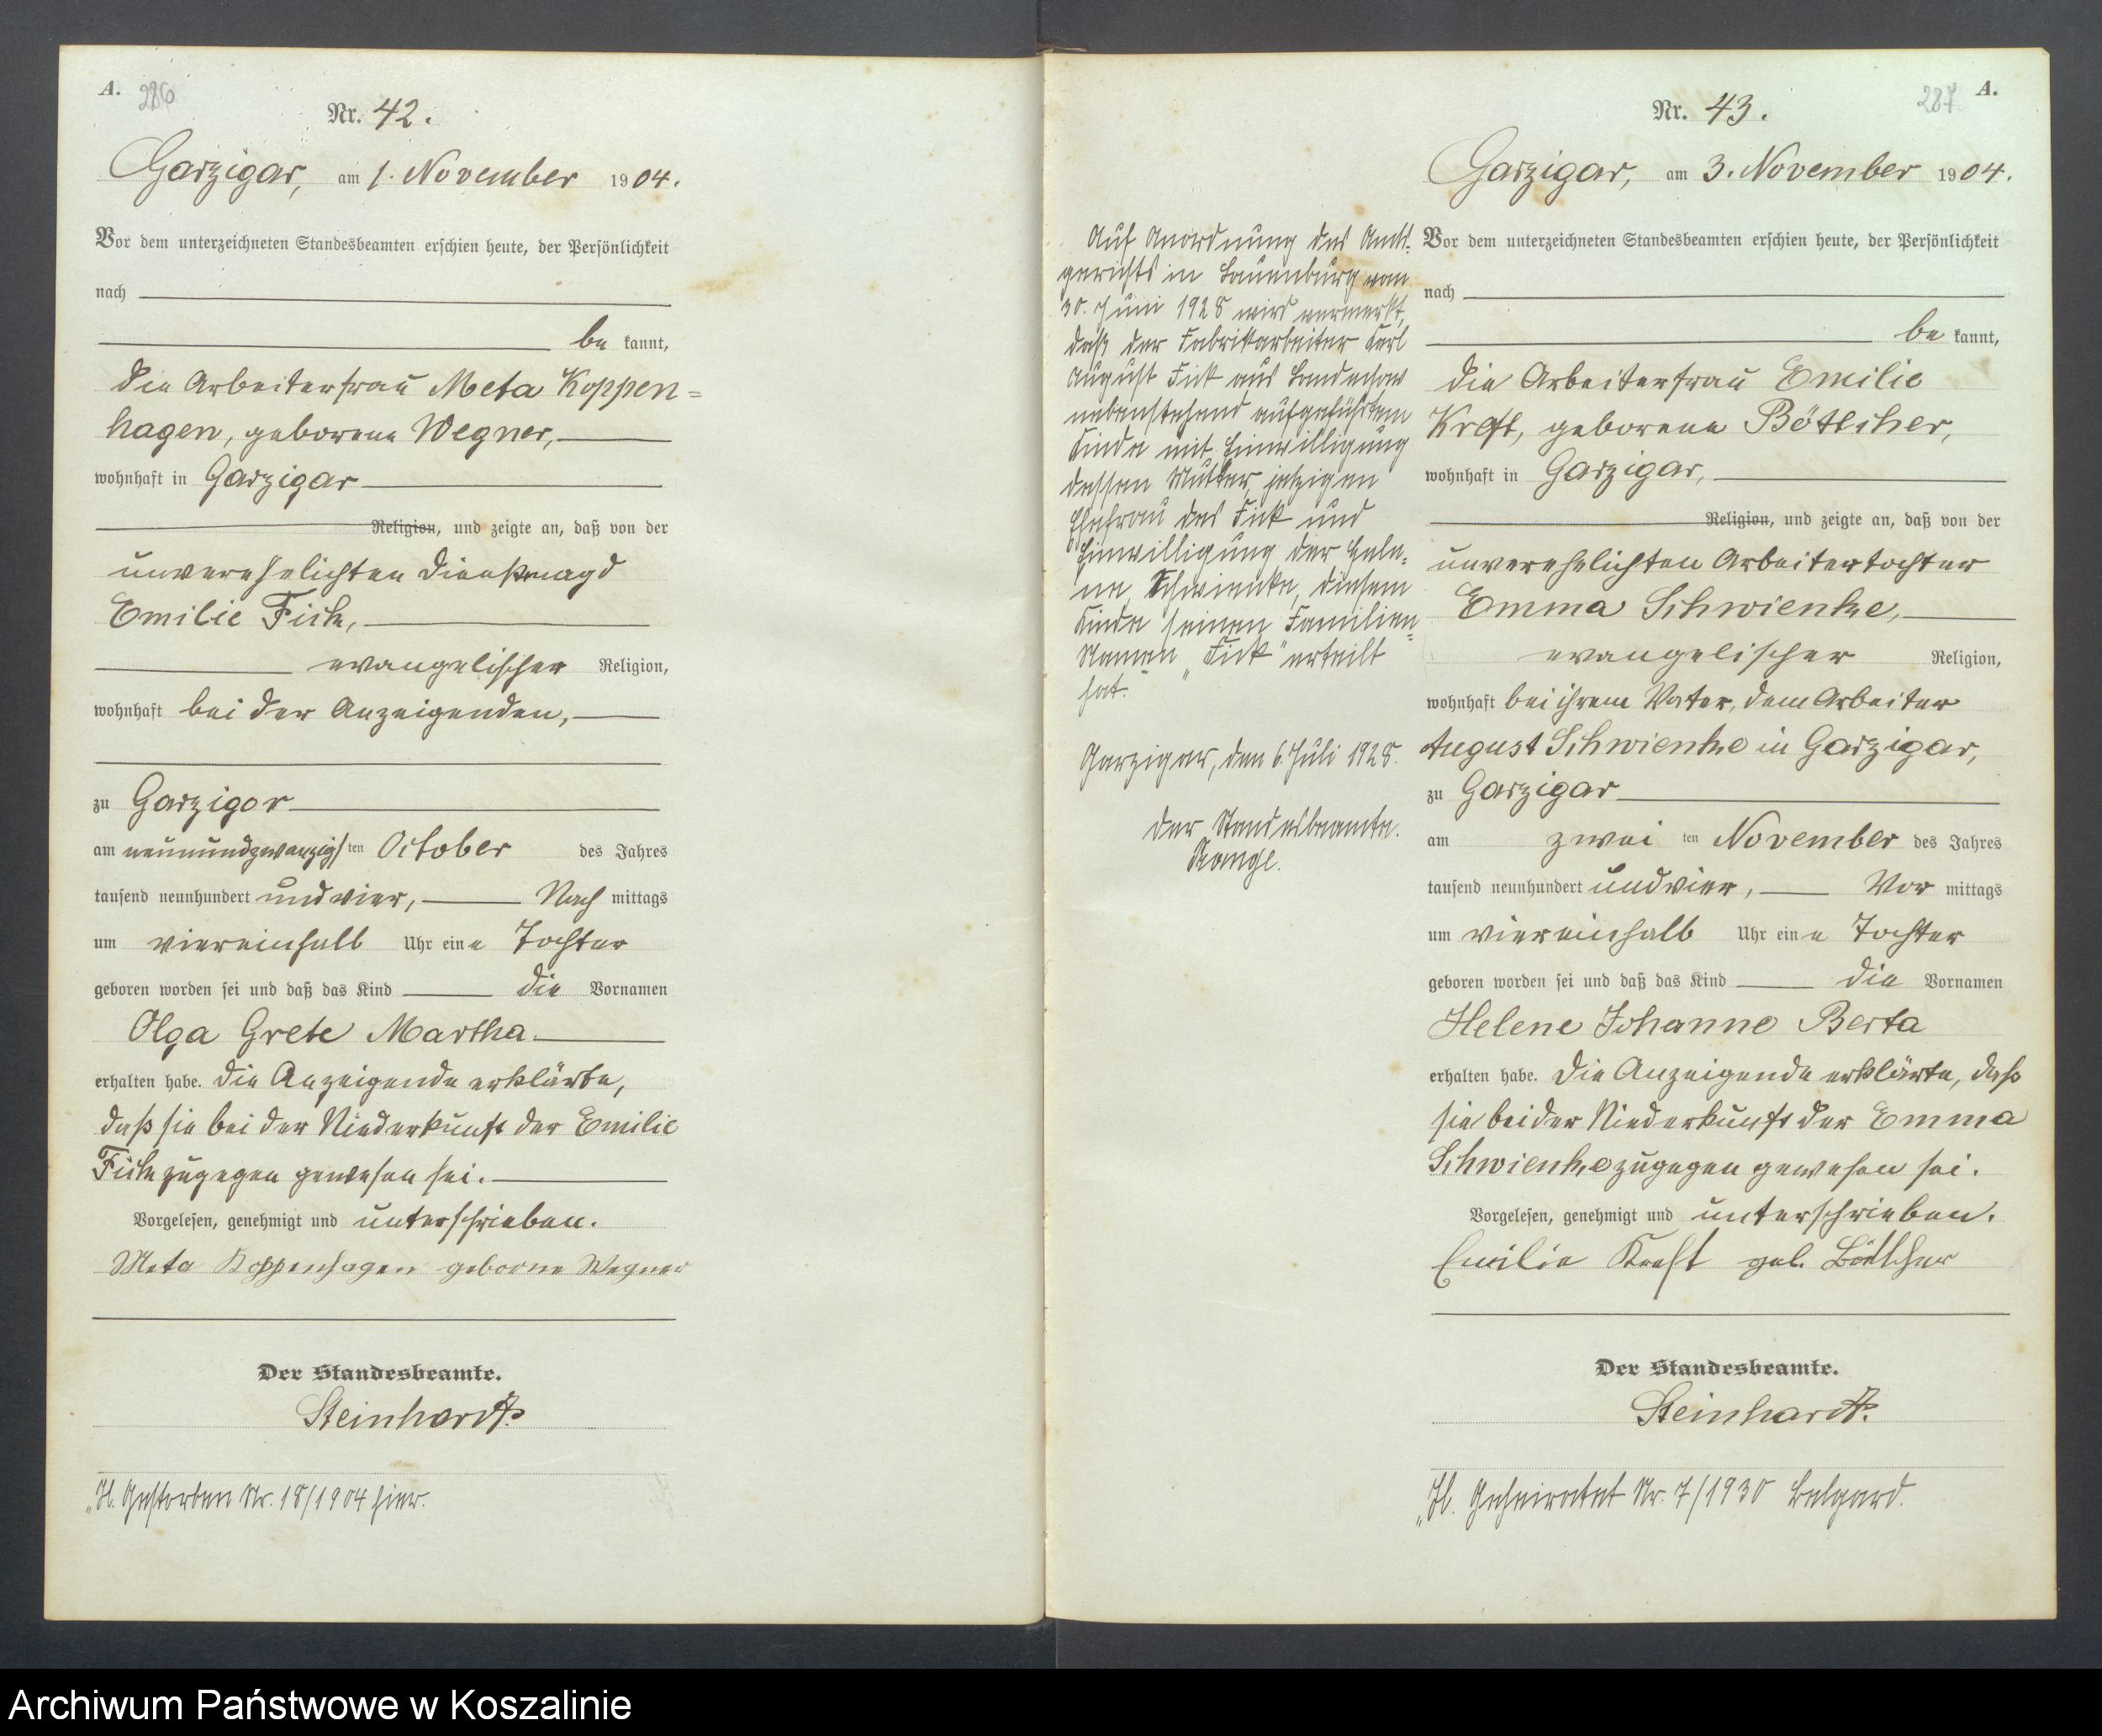 A. 286
Nr. 42.
Garzigar, am 1. November 1904.
Vor dem unterzeichneten Standesbeamten erschien heute, der Persönlichkeit
nach
be kannt,
die Arbeiterfrau Meta Koppen=
hagen, geborene Wegner,
wohnhaft in Garzigar
Religion, und zeigte an, daß von der
unverehelichten Dienstmagd
Emilie Fick,
evangelischer Religion,
wohnhaft bei der Anzeigenden,
zu Garzigar
am neunundzwanzigsten October des Jahres
tausend neunhundert und vier, Nach mittags
um viereinhalb Uhr eine Tochter
geboren worden sei und daß das Kind die Vornamen
Olga Grete Martha
erhalten habe. Die Anzeigende erklärte,
daß sie bei der Niederkunft der Emilie
Fick zugegen gewesen sei.
Vorgelesen, genehmigt und unterschrieben.
Meta Koppenhagen geborne Wegner
Der Standesbeamte.
Steinhardt.
H. Gestorben Nr. 18/1904 hier.
287 A.
Nr. 43.
Garzigar, am 3. November 1904.
Auf Anordnung des Amts-
gerichts in Lauenburg vom
30. Juni 1928 wird vermerkt,
daß der Fabrikarbeiter Karl
August Fick aus
nebenstehend aufgeführtem
Kinde mit Einwilligung
dessen Mutter, jetzigen
Ehefrau des Fick und
Einwilligung der Hele=
ne Schwienke, diesem
Kinde seinen Familien=
Namen "Fick" erteilt
hat.
Garzigar, den 6. Juli 1928.
Der Standesbeamte.
Vor dem unterzeichneten Standesbeamten erschien heute, der Persönlichkeit
nach
be kannt,
die Arbeiterfrau Emilie
Kreft, geborene Böttcher,
wohnhaft in Garzigar,
Religion, und zeigte an, daß von der
unverehelichten Arbeitertochter
Emma Schwienke,
evangelischer Religion,
wohnhaft bei ihrem Vater, dem Arbeiter
August Schwienke in Garzigar,
zu Garzigar
am zwei ten November des Jahres
tausend neunhundert und vier, Vor mittags
um viereinhalb Uhr eine Tochter
geboren worden sei und daß das Kind die Vornamen
Helene Johanne Berta
erhalten habe. Die Anzeigende erklärte, daß
sie bei der Niederkunft der Emma
Schwienke zugegen gewesen sei.
Vorgelesen, genehmigt und unterschrieben.
Emilie Kreft geb. Böttcher
Der Standesbeamte.
Steinhardt.
H. Geheiratet Nr. 7/1930 Belgard.
Archiwum Państwowe w Koszalinie